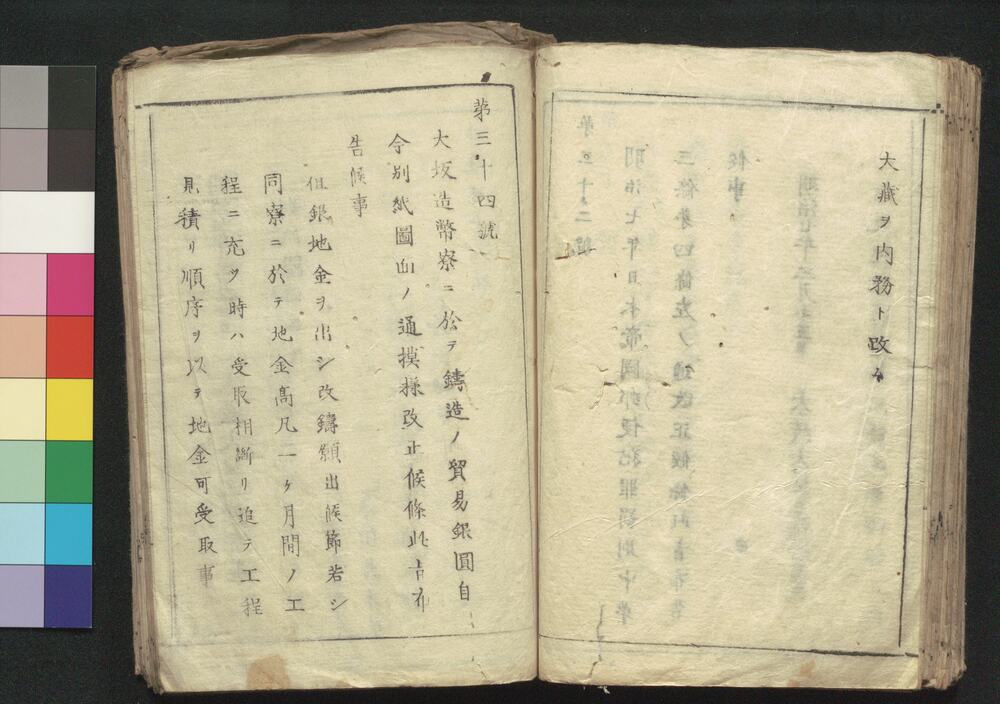 大藏ヲ内務ト改ム
第三十四號
大坂造幣寮ニ於テ鑄造ノ貿易銀圓自
今別紙圖面ノ通摸様改正候條此旨布
告候事
但銀地金ヲ出シ改鑄願出候節若シ
同寮ニ於テ地金高凡一ケ月間ノ工
程ニ充ツ時ハ受取相斷リ追テ工程
見積リ順序ヲ以テ地金可受取事